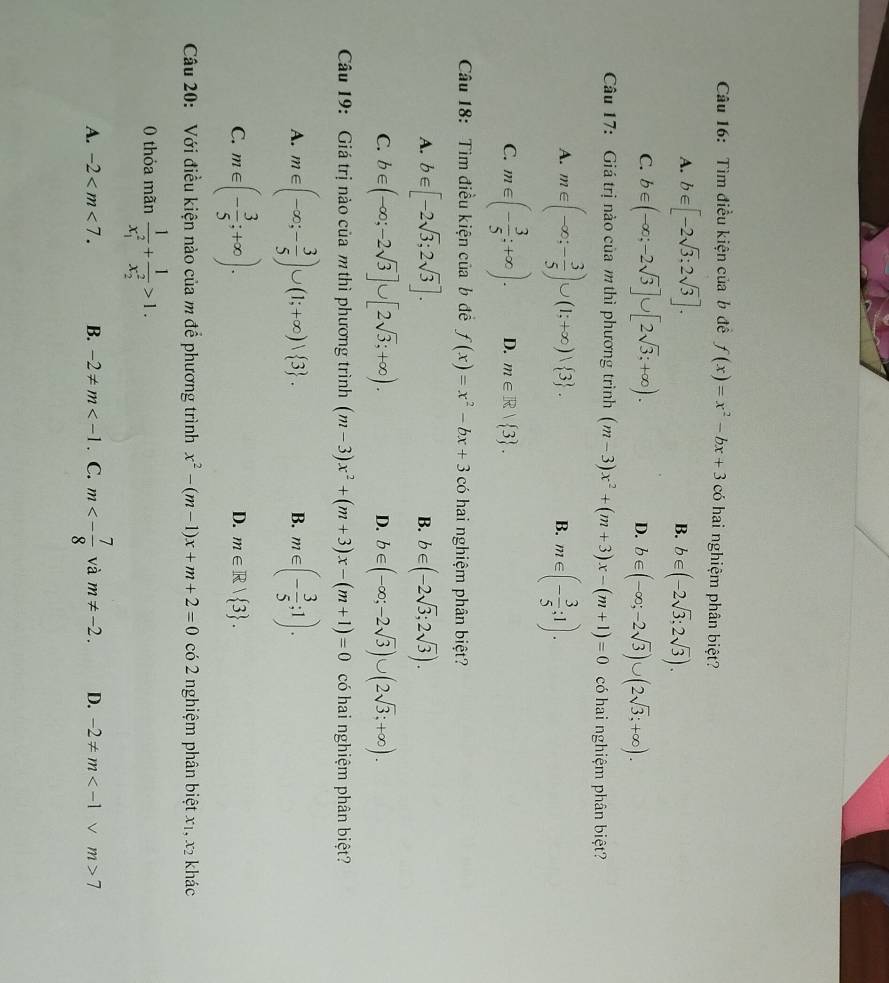 Câu 16: Tìm điều kiện của b để f(x) = x² − bx + 3 có hai nghiệm phân biệt?
A. b ∈ [−2√3; 2√3]. B. b ∈ (−2√3; 2√3).
C. b ∈ (−∞; −2√3] ∪ [2√3; +∞). D. b ∈ (−∞; −2√3) ∪ (2√3; +∞).
Câu 17: Giá trị nào của m thì phương trình (m − 3)x² + (m + 3)x − (m + 1) = 0 có hai nghiệm phân biệt?
A. m ∈ (−∞; −3/5) ∪ (1; +∞) \ {3}. B. m ∈ (−3/5; 1).
C. m ∈ (−3/5; +∞). D. m ∈ ℝ \ {3}.
Câu 18: Tìm điều kiện của b để f(x) = x² − bx + 3 có hai nghiệm phân biệt?
A. b ∈ [−2√3; 2√3]. B. b ∈ (−2√3; 2√3).
C. b ∈ (−∞; −2√3] ∪ [2√3; +∞). D. b ∈ (−∞; −2√3) ∪ (2√3; +∞).
Câu 19: Giá trị nào của m thì phương trình (m − 3)x² + (m + 3)x − (m + 1) = 0 có hai nghiệm phân biệt?
A. m ∈ (−∞; −3/5) ∪ (1; +∞) \ {3}. B. m ∈ (−3/5; 1).
C. m ∈ (−3/5; +∞). D. m ∈ ℝ \ {3}.
Câu 20: Với điều kiện nào của m để phương trình x² − (m − 1)x + m + 2 = 0 có 2 nghiệm phân biệt x₁, x₂ khác
0 thỏa mãn 1/x₁² + 1/x₂² > 1.
A. −2 < m < 7. B. −2 ≠ m < −1. C. m < −7/8 và m ≠ −2. D. −2 ≠ m < −1 ∨ m > 7